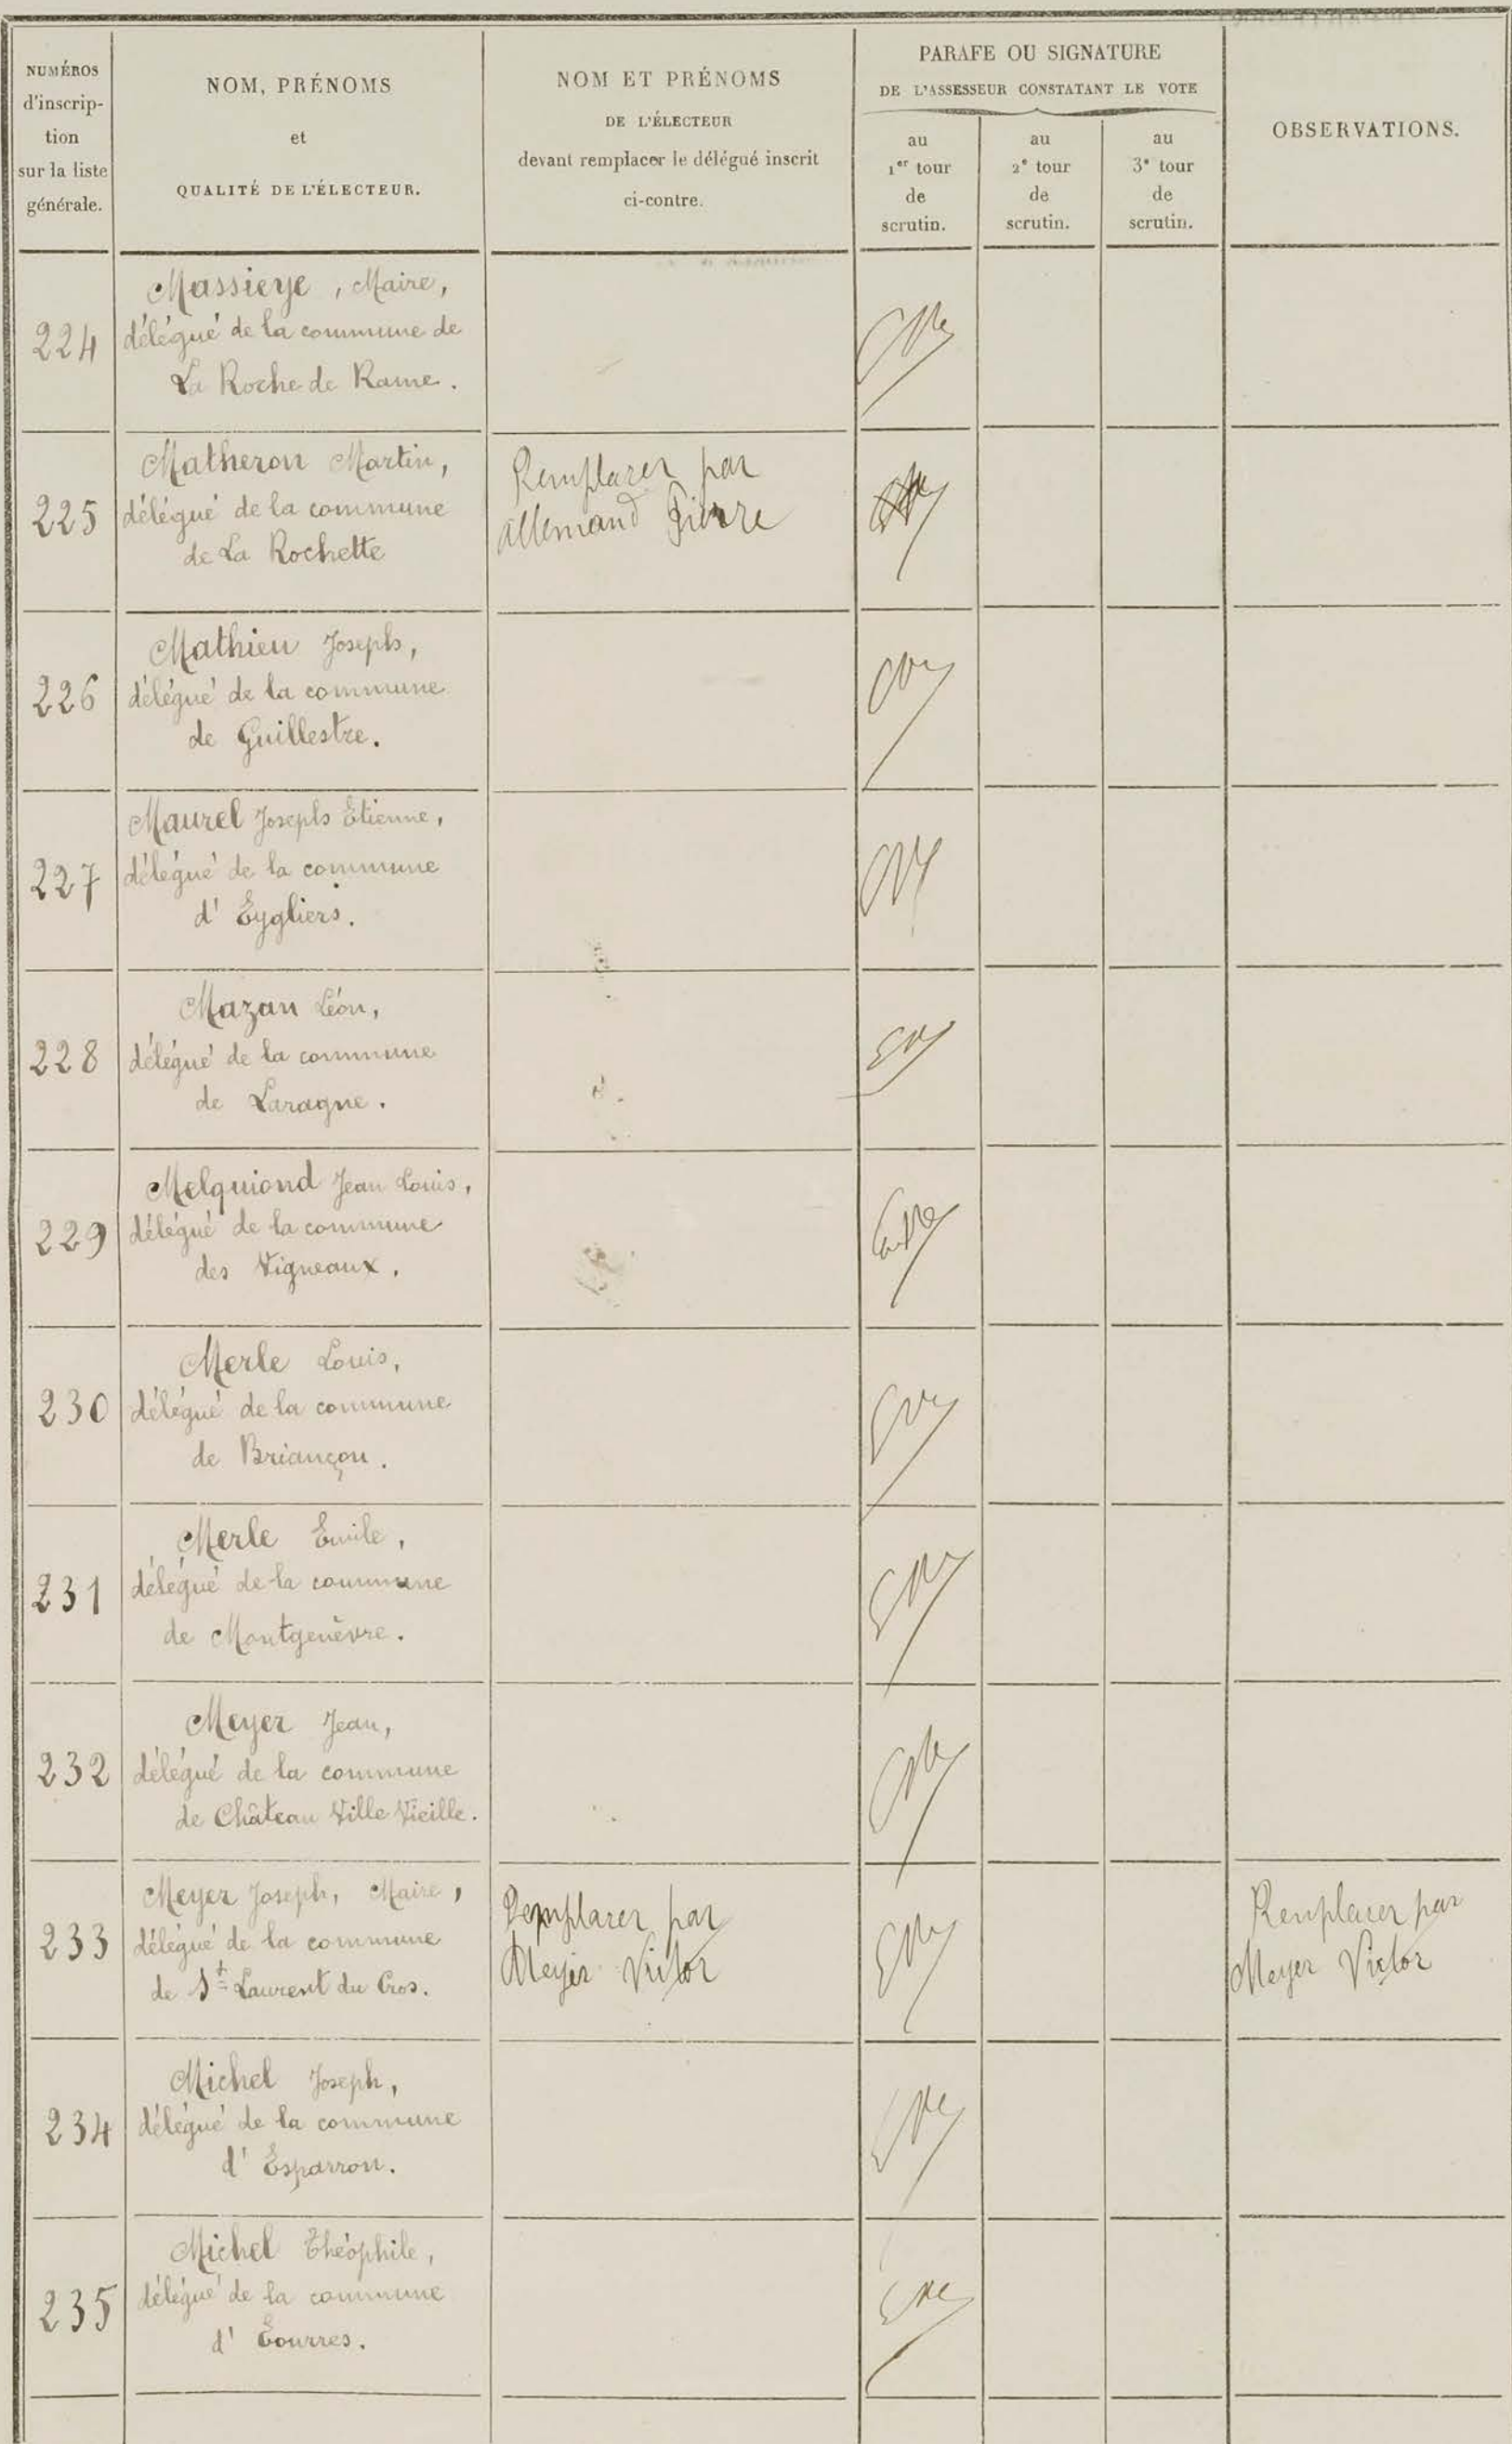 NUMÉROS
d'inscrip-
tion
sur la liste
générale.
NOM, PRÉNOMS
et
QUALITÉ DE L'ÉLECTEUR.
NOM ET PRÉNOMS
DE L'ÉLECTEUR
devant remplacer le délégué inscrit
ci-contre.
PARAFE OU SIGNATURE
DE L'ASSESSEUR CONSTATANT LE VOTE
au
1er tour
de
scrutin.
au
2e tour
de
scrutin.
au
3e tour
de
scrutin.
OBSERVATIONS.
224
Massieye, Maire,
délégué de la commune de
La Roche de Rame.
225
Matheron Martin,
délégué de la commune
de La Rochette
Remplacer par
allemand Pierre
226
Mathieu Joseph,
délégué de la commune
de Guillestre.
227
Maurel Joseph Etienne,
délégué de la commune
d'Eygliers.
228
Mazan Léon,
délégué de la commune
de Laragne.
229
Melquiond Jean Louis,
délégué de la commune
des Vigneaux.
230
Merle Louis,
délégué de la commune
de Briançon.
231
Merle Emile,
délégué de la commune
de Montgenèvre.
232
Meyer Jean,
délégué de la commune
de Château Ville Vieille.
233
Meyer Joseph, Maire,
délégué de la commune
de St Laurent du Cros.
Remplacer par
Meyer Victor
Remplacer par
Meyer Victor
234
Michel Joseph,
délégué de la commune
d'Esparron.
235
Michel Théophile,
délégué de la commune
d'Eourres.